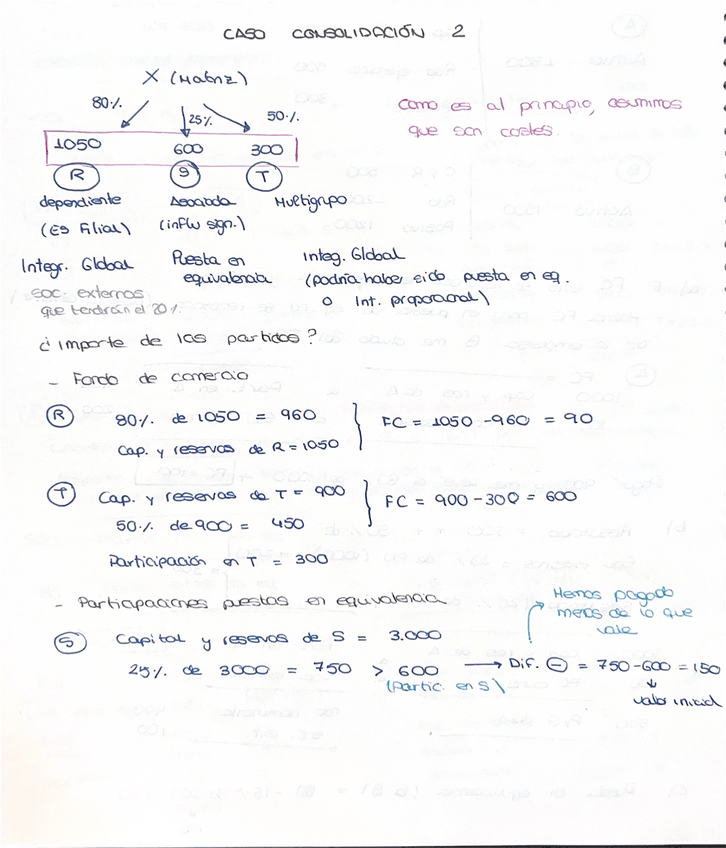 CASO CONSOLIDACIÓN 2
X (Matriz)
80% 25% 50%
1050 600 300
Como es al principio, asumimos
que son costes.
R S T
dependiente Asociada Multigrupo
(Es Filial) (influ sign.)
Integr. Global Puesta en equivalencia Integ. Global
(podría haber sido puesta en eq.
o Int. proporcional)
soc. externos
que tendrán el 20%
¿importe de las partidas?
- Fondo de comercio
R 80% de 1050 = 960
Cap. y reservas de R = 1050
FC = 1050 - 960 = 90
T Cap. y reservas de T = 900
50% de 900 = 450
FC = 900 - 300 = 600
Participación en T = 300
- Participaciones puestas en equivalencia
Hemos pagado
menos de lo que
vale
S Capital y reservas de S = 3.000
25% de 3000 = 750 > 600 → Dif. - = 750-600 = 150
(Partic. en S)
valor inicial